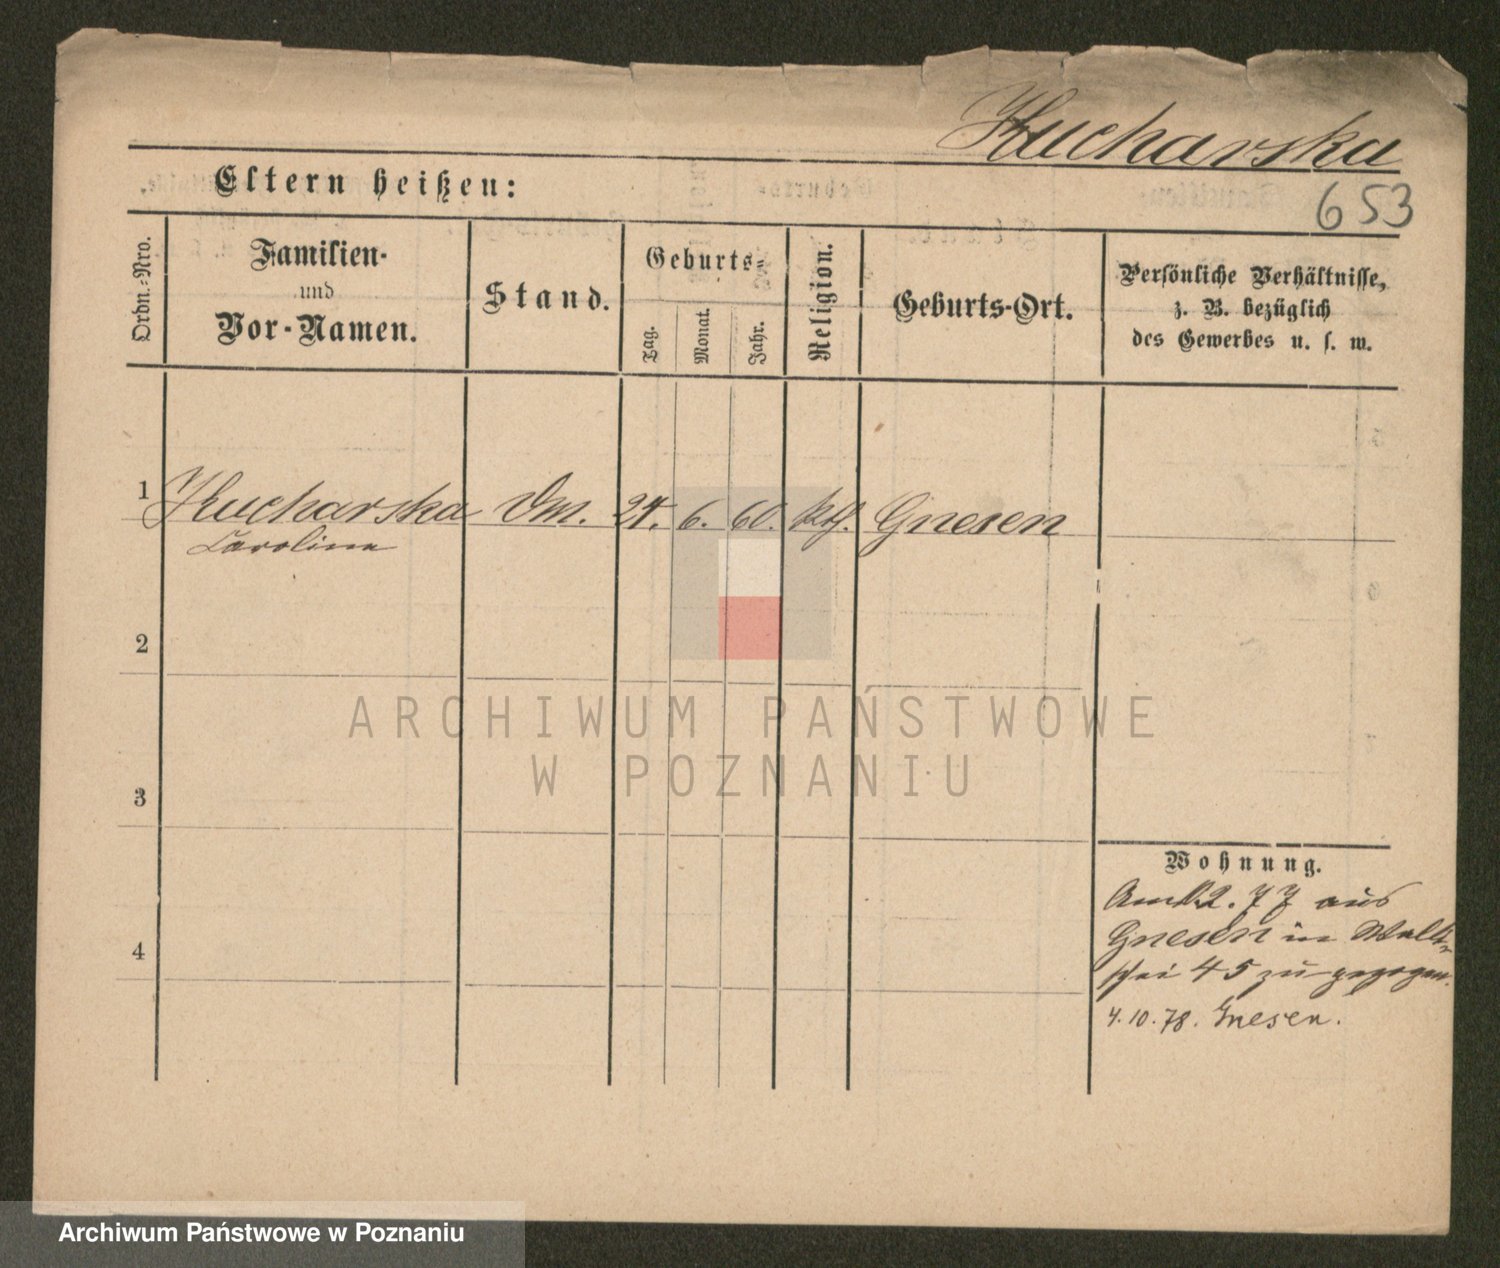 Kucharska
653
Eltern heißen:
Ordn.-Nro.
Familien-
und
Vor-Namen.
Stand.
Geburts-
Tag.
Monat.
Jahr.
Religion.
Geburts-Ort.
Persönliche Verhältnisse,
z. B. bezüglich
des Gewerbes u. s. w.
1 Kucharska Dm. 24. 6. 60. kth. Gnesen
Caroline
2
3
4
Wohnung.
Am 2. 77 aus
Gnesen in Walli-
schei 45 zugezogen.
4.10.78. Gnesen.
ARCHIWUM PAŃSTWOWE
W POZNANIU
Archiwum Państwowe w Poznaniu